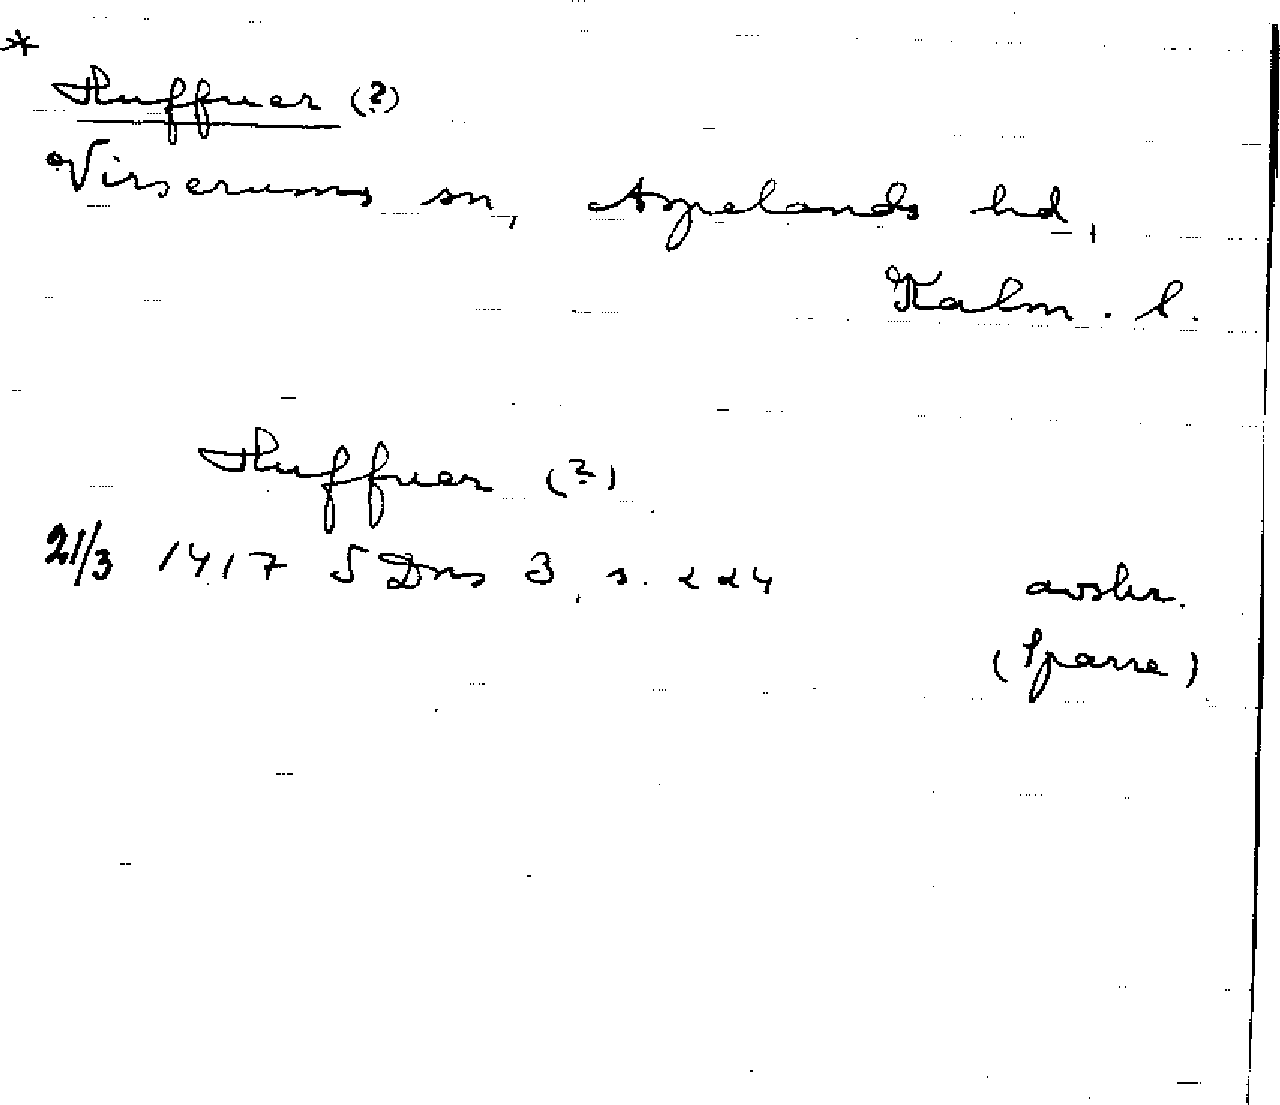 *
Huffuer (?)
Virserums sn, Aspelands hd,
Kalm. l.
Huffuer (?)
21/3 1417 SDns 3, s. 224 avskr.
(Sparre)